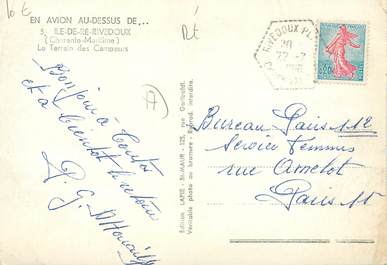 10 €
Rt
EN AVION AU-DESSUS DE...
5. ILE-DE-RÉ-RIVEDOUX
(Charente-Maritime)
Le Terrain des Campeurs
Bonjour à toutes
et à bientôt le retour
P. G.
Edition LAPIE - St-MAUR - 125, rue Garibaldi.
Véritable photo au bromure - Reprod. interdite.
RIVEDOUX-PL
0,20
Bureau Paris 112
Service Femmes
rue Amelot
Paris 11